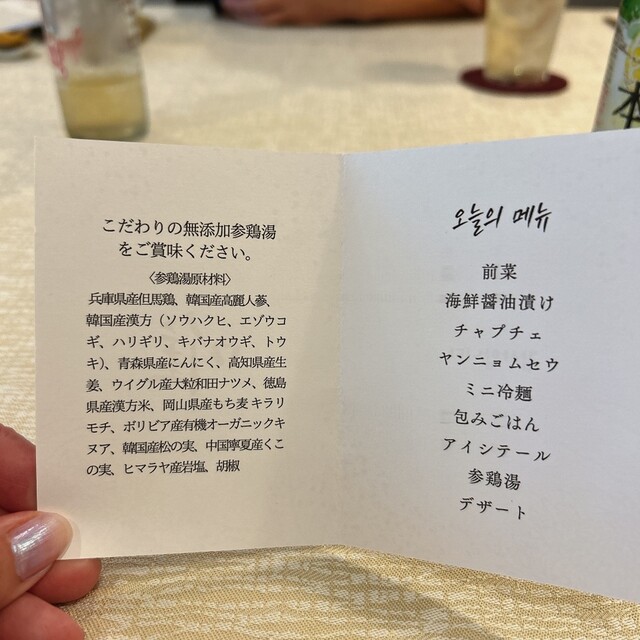 本
こだわりの無添加参鶏湯
をご賞味ください。
〈参鶏湯原材料〉
兵庫県産但馬鶏、韓国産高麗人蔘、
韓国産漢方（ソウハクヒ、エゾウコ
ギ、ハリギリ、キバナオウギ、トウ
キ）、青森県産にんにく、高知県産生
姜、ウイグル産大粒和田ナツメ、徳島
県産漢方米、岡山県産もち麦 キラリ
モチ、ボリビア産有機オーガニックキ
ヌア、韓国産松の実、中国寧夏産くこ
の実、ヒマラヤ産岩塩、胡椒
오늘의 메뉴
前菜
海鮮醤油漬け
チャプチェ
ヤンニョムセウ
ミニ冷麺
包みごはん
アイシテール
参鶏湯
デザート